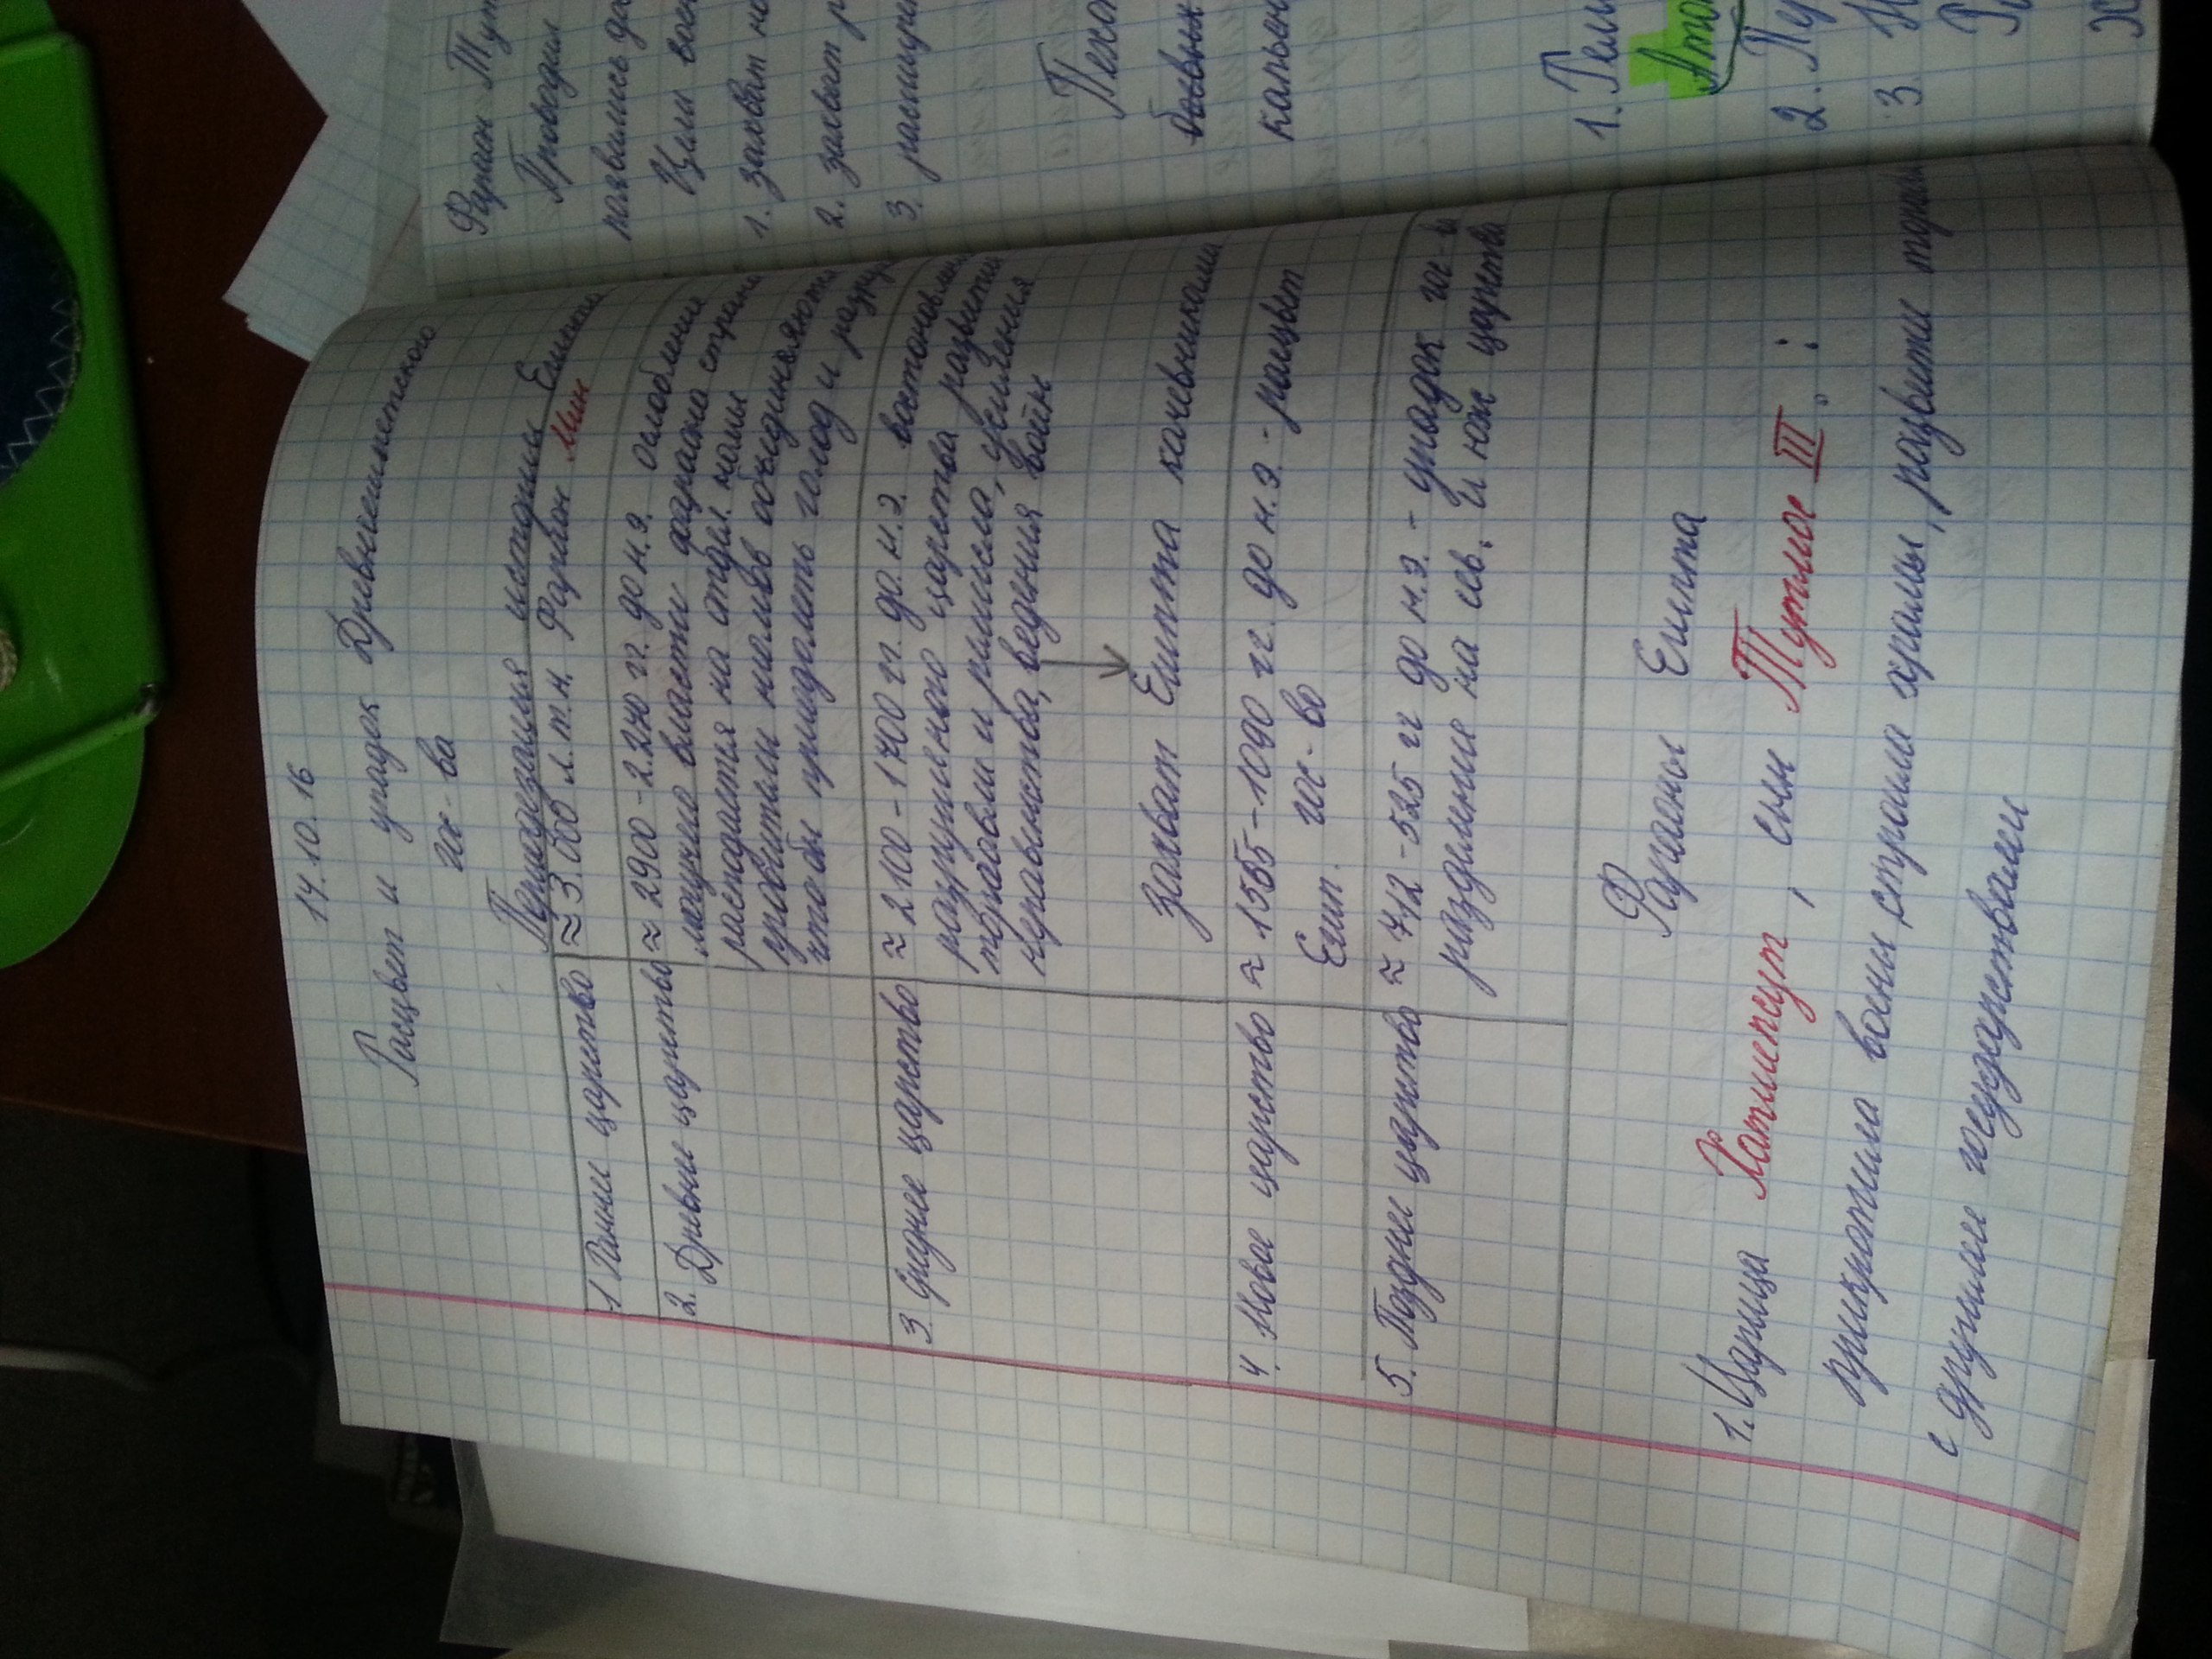 14.10.16
Расцвет и упадок Древнеегипетского
гос-ва
Периодезация истории Египта
1 Раннее царство ≈ 3.000 л.т.н. Фараон Мин
2. Древнее царство ≈ 2900-2270 гг. до н.э. ослобление
могучей власти фараона страна
расподается на отдел. номы
правители номов объединяются
чтобы приодалеть голод и разру
3. Среднее царство ≈ 2100-1700 гг. до. н.э. востоновлен
разрушенного царства развитие
торговли и ремесла, усиления
неравенства, ведения войн
захват Египта кочевниками
4. Новое царство ≈ 1555-1090 гг. до н.э. - расцвет
Егип. гос-во
5. Позднее царство ≈ 712-525 гг до н.э. - упадок гос-ва
разделение на сев. и юж царства
Фараоны Египта
1. Царица Хатшепсут, сын Тутмос III. :
прикротила воены, строила храмы, развити торговл
с другими государствами
Фараон Тут
Проводил
появились до
Цели воен
1. захват но
2. захват р
3. расширен
Пехо
боевых
колесн
1. Гели
Амо
2. Пу
3. Н